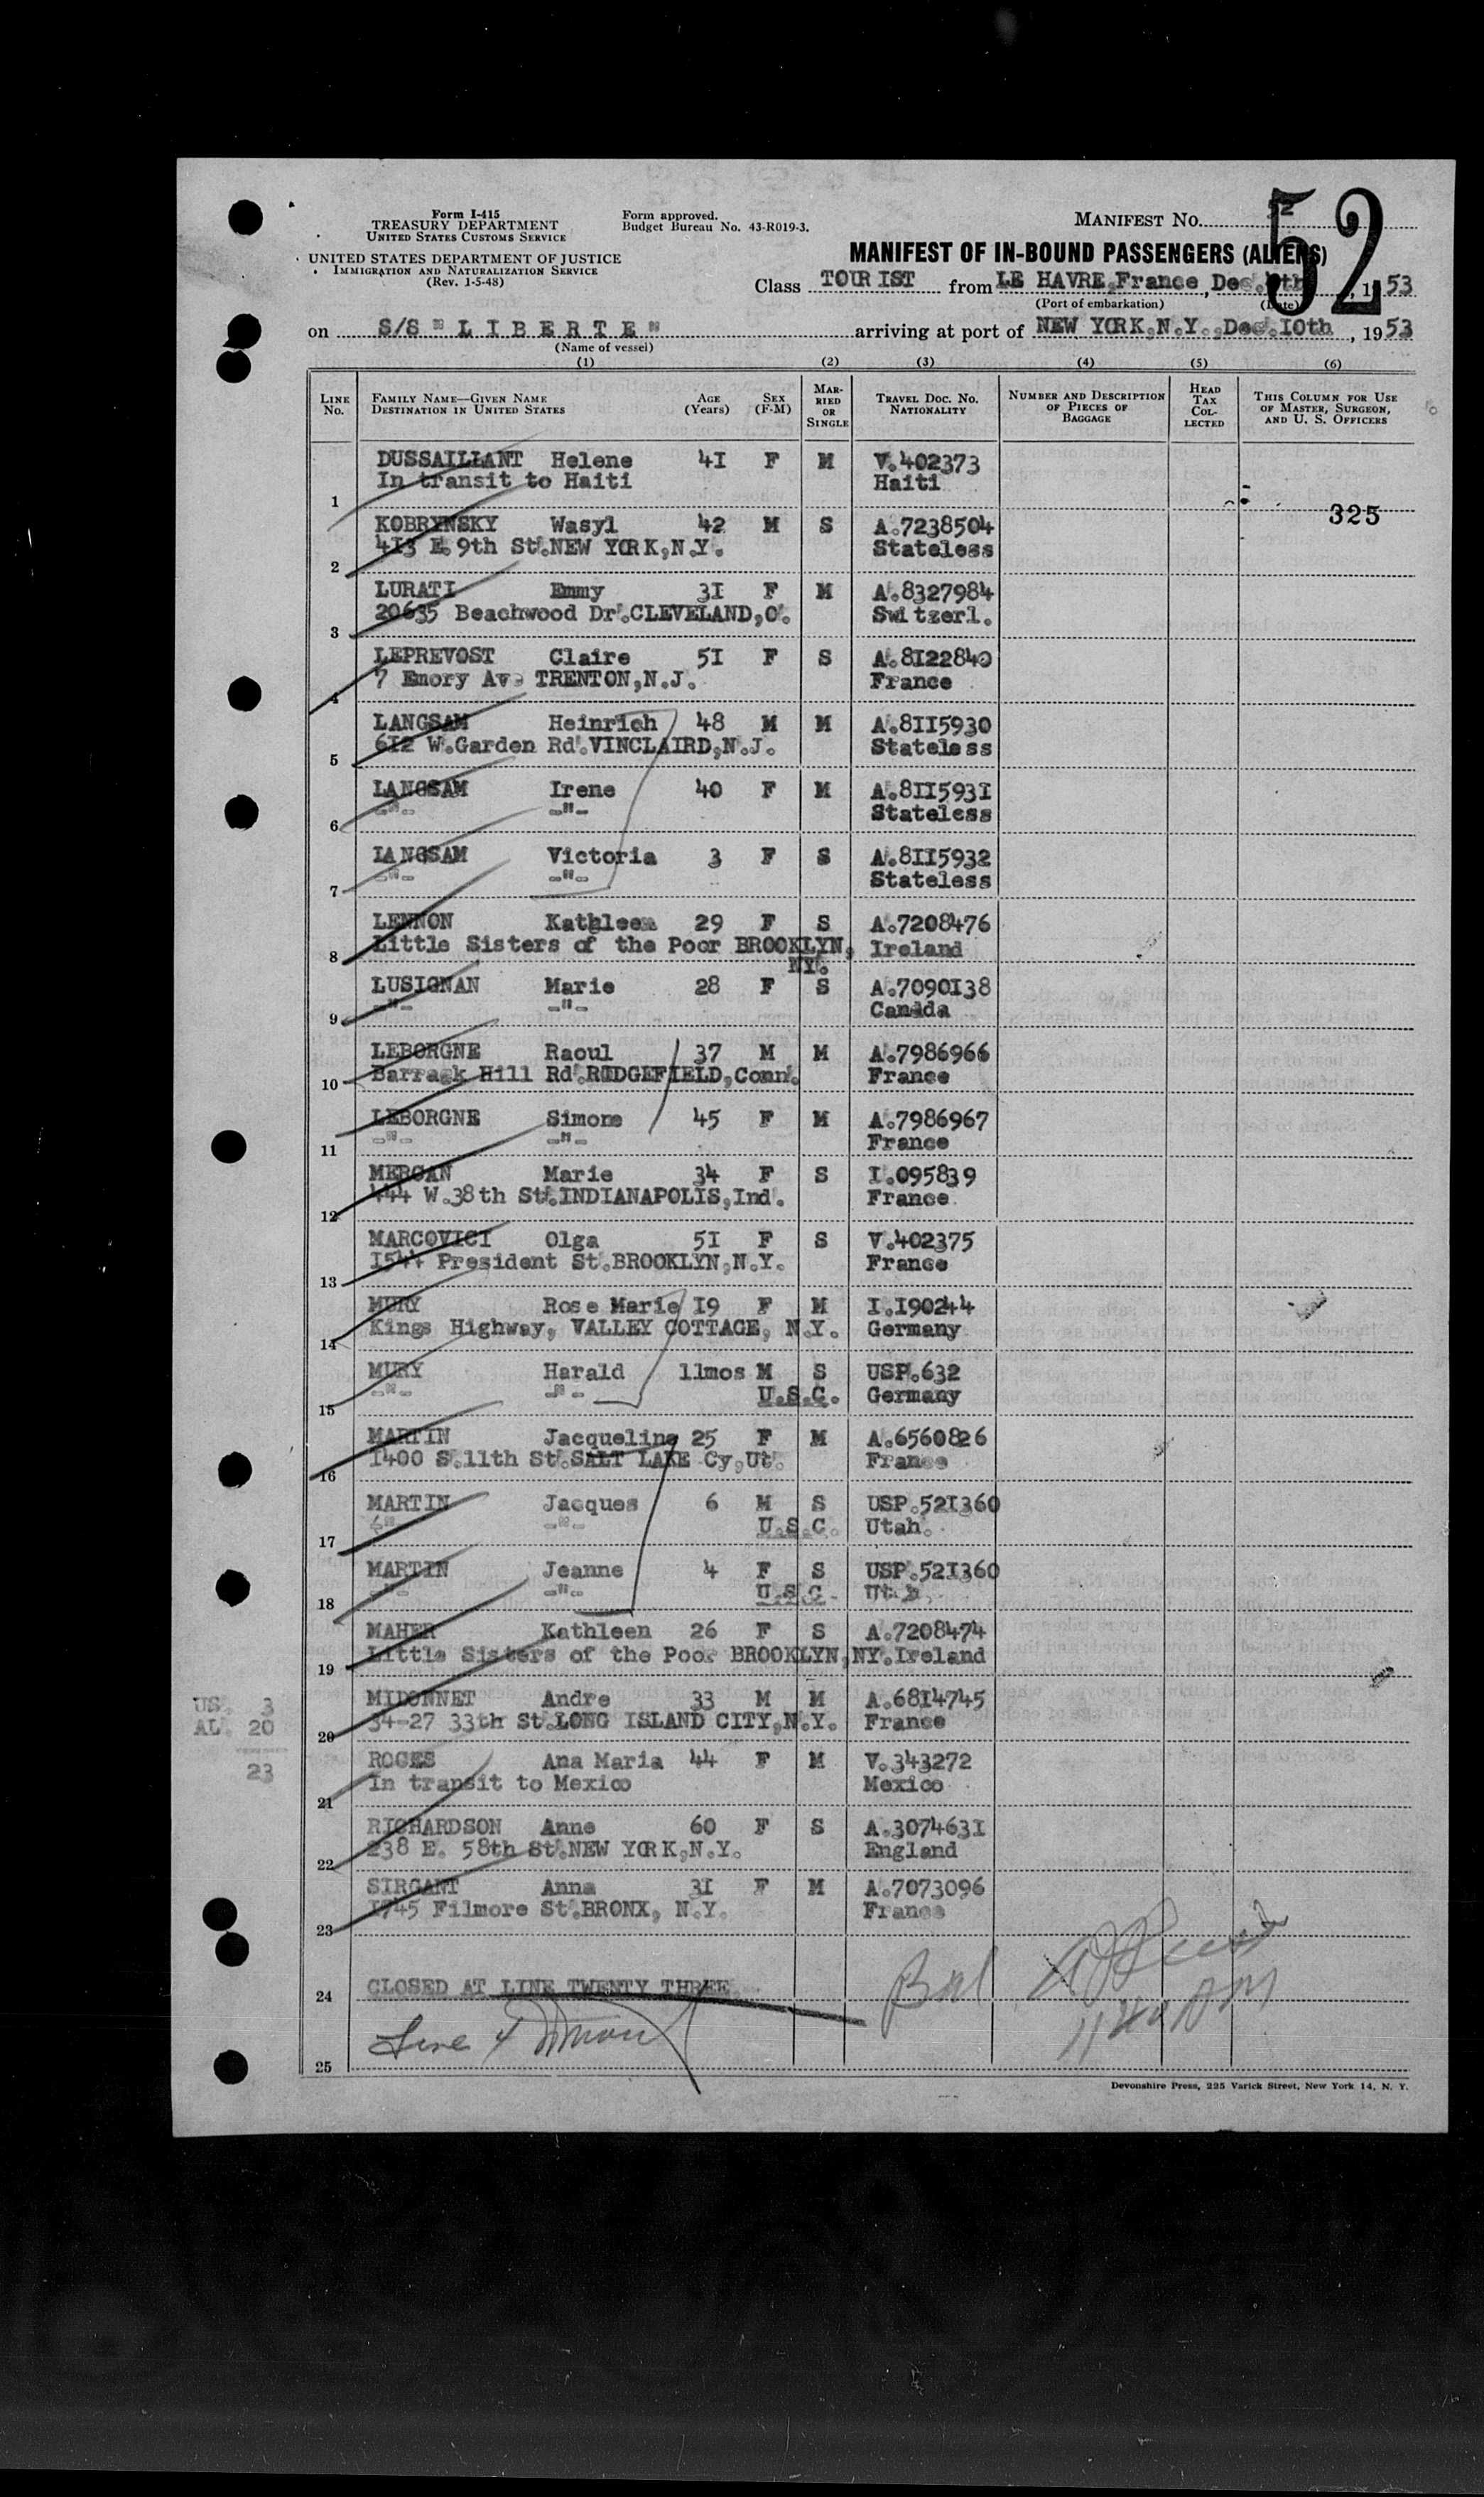 Form I-415
TREASURY DEPARTMENT
UNITED STATES CUSTOMS SERVICE
UNITED STATES DEPARTMENT OF JUSTICE
IMMIGRATION AND NATURALIZATION SERVICE
(Rev. 1-5-48)
Form approved.
Budget Bureau No. 43-R019-3.
MANIFEST NO. 52
52
MANIFEST OF IN-BOUND PASSENGERS (ALIENS)
Class TOURIST from LE HAVRE,France, Dec. , 1953
(Port of embarkation) (Date)
on S/S " L I B E R T E " arriving at port of NEW YORK,N.Y.,Dec.IOth, 1953
(Name of vessel)
(1) (2) (3) (4) (5) (6)
LINE No. FAMILY NAME—GIVEN NAME DESTINATION IN UNITED STATES AGE (Years) SEX (F-M) MARRIED OR SINGLE TRAVEL DOC. NO. NATIONALITY NUMBER AND DESCRIPTION OF PIECES OF BAGGAGE HEAD TAX COLLECTED THIS COLUMN FOR USE OF MASTER, SURGEON, AND U. S. OFFICERS
DUSSAILLANT Helene 4I F M V.402373
1 In transit to Haiti Haiti
325
KOBRYNSKY Wasyl 42 M S A.7238504
2 4I3 E.9th St.NEW YORK,N.Y. Stateless
LURATI Emmy 3I F M A.8327984
3 20635 Beachwood Dr.CLEVELAND,O. Switzerl.
LEPREVOST Claire 5I F S A.8I22840
4 7 Emory Av. TRENTON,N.J. France
LANGSAM Heinrich 48 M M A.8II5930
5 6I2 W.Garden Rd.VINCLAIRD,N.J. Stateless
LANGSAM Irene 40 F M A.8II593I
6 -"- -"- Stateless
LANGSAM Victoria 3 F S A.8II5932
7 -"- -"- Stateless
LENNON Kathleen 29 F S A.7208476
8 Little Sisters of the Poor BROOKLYN, NY. Ireland
LUSIGNAN Marie 28 F S A.7090I38
9 -"- -"- Canada
LEBORGNE Raoul 37 M M A.7986966
10 Barrack Hill Rd.RIDGEFIELD,Conn. France
LEBORGNE Simone 45 F M A.7986967
11 -"- -"- France
MERCAN Marie 34 F S I.095839
12 444 W.38th St.INDIANAPOLIS,Ind. France
MARCOVICI Olga 5I F S V.402375
13 I544 President St.BROOKLYN,N.Y. France
MURY Rose Marie I9 F M I.I90244
14 Kings Highway, VALLEY COTTAGE, N.Y. Germany
MURY Harald 11mos M S USP.632
15 -"- -"- U.S.C. Germany
MARTIN Jacqueline 25 F M A.6560826
16 1400 S.11th St.SALT LAKE Cy,Ut. France
MARTIN Jacques 6 M S USP.52I360
17 -"- -"- U.S.C. Utah.
MARTIN Jeanne 4 F S USP.52I360
18 -"- -"- U.S.C. Utah.
MAHER Kathleen 26 F S A.7208474
19 Little Sisters of the Poor BROOKLYN,NY.Ireland
MIDONNET Andre 33 M M A.68I4745
20 34-27 33th St.LONG ISLAND CITY,N.Y. France
US. 3
AL. 20
23
ROCES Ana Maria 44 F M V.343272
21 In transit to Mexico Mexico
RICHARDSON Anne 60 F S A.307463I
22 238 E. 58th St.NEW YORK,N.Y. England
SIRGANT Anna 3I F M A.7073096
23 I745 Filmore St.BRONX, N.Y. France
24 CLOSED AT LINE TWENTY THREE
25
Devonshire Press, 225 Varick Street, New York 14, N. Y.